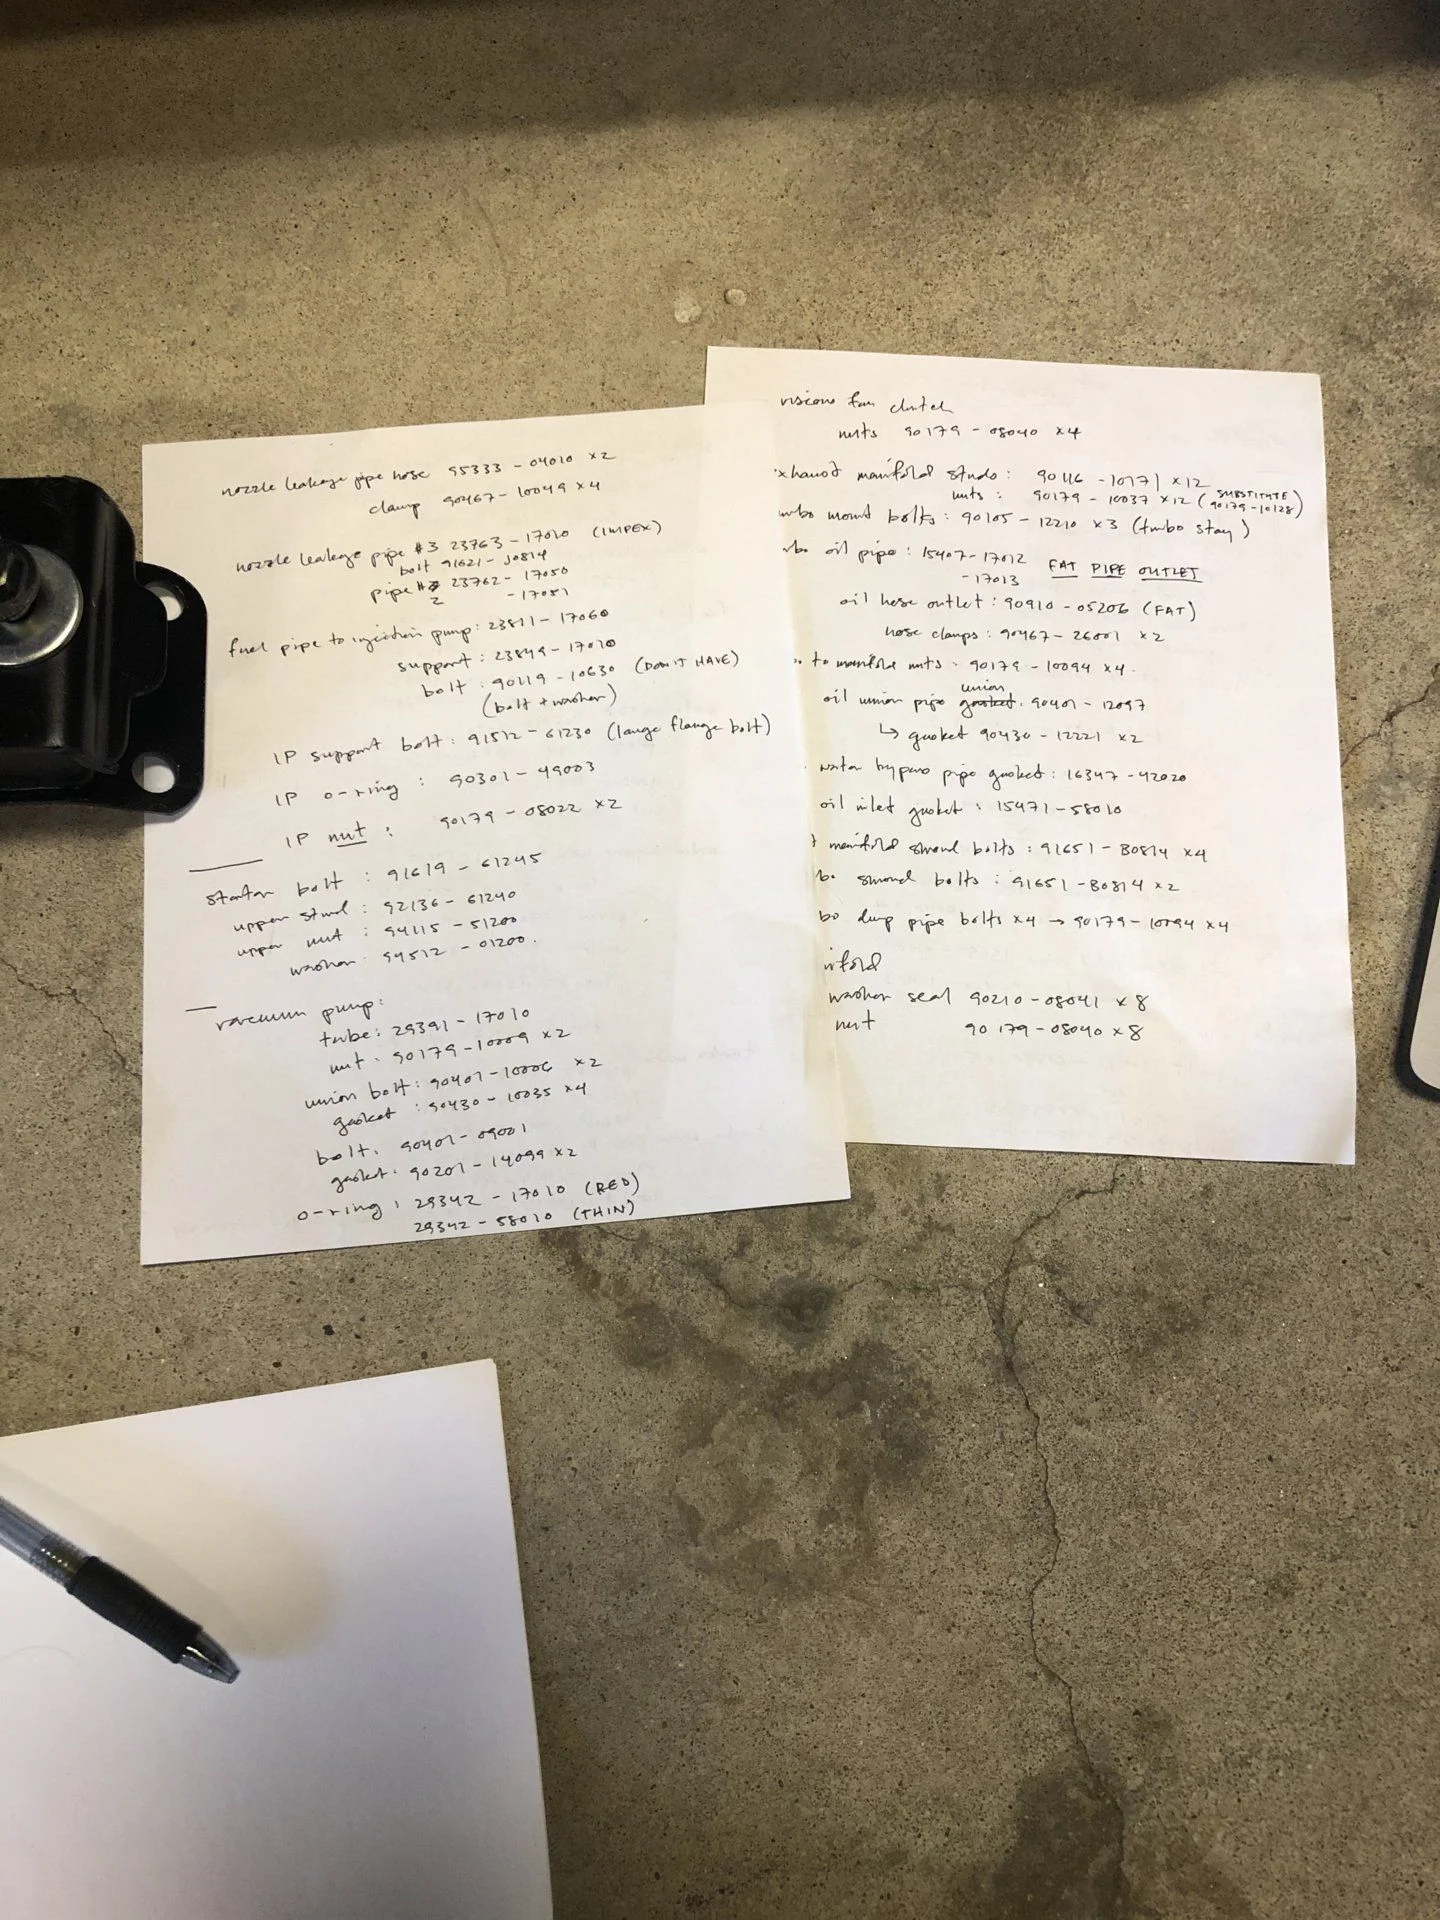 nozzle leakage pipe hose 95333-04010 x2
clamp 90467-10049 x4
nozzle leakage pipe #3 23763-17010 (IMPEX)
bolt 91621-J0814
pipe # 23762-17050
2 -17051
fuel pipe to injection pump: 23811-17060
support: 23849-17010
bolt: 90119-10630 (DON'T HAVE)
(bolt + washer)
IP support bolt: 91512-61230 (large flange bolt)
IP o-ring: 90301-49003
IP nut: 90179-08022 x2
starter bolt: 91619-61245
upper stud: 92136-61240
upper nut: 94115-51200
washer: 94512-01200.
vacuum pump:
tube: 29391-17010
nut: 90179-10009 x2
union bolt: 90401-10006 x2
gasket: 90430-10035 x4
bolt: 90401-09001
gasket: 90201-14099 x2
o-ring: 29342-17010 (RED)
29342-58010 (THIN)
viscous fan clutch
nuts 90179-08040 x4
xhaust manifold studs: 90116-10171 x12
nuts: 90179-10037 x12 (SUBSTITUTE 90179-10128)
urbo mount bolts: 90105-12210 x3 (turbo stay)
rbo oil pipe: 15407-17012 FAT PIPE OUTLET
-17013
oil hose outlet: 90910-05206 (FAT)
hose clamps: 90467-26001 x2
to manifold nuts: 90179-10094 x4.
oil union pipe gasket union: 90401-12097
↳ gasket 90430-12221 x2
water bypass pipe gasket: 16347-42020
oil inlet gasket: 15471-58010
t manifold shroud bolts: 91651-B0814 x4
bo shroud bolts: 91651-B0814 x2
bo dump pipe bolts x4 → 90179-10094 x4
ifold
washer seal 90210-08041 x8
nut 90179-08040 x8